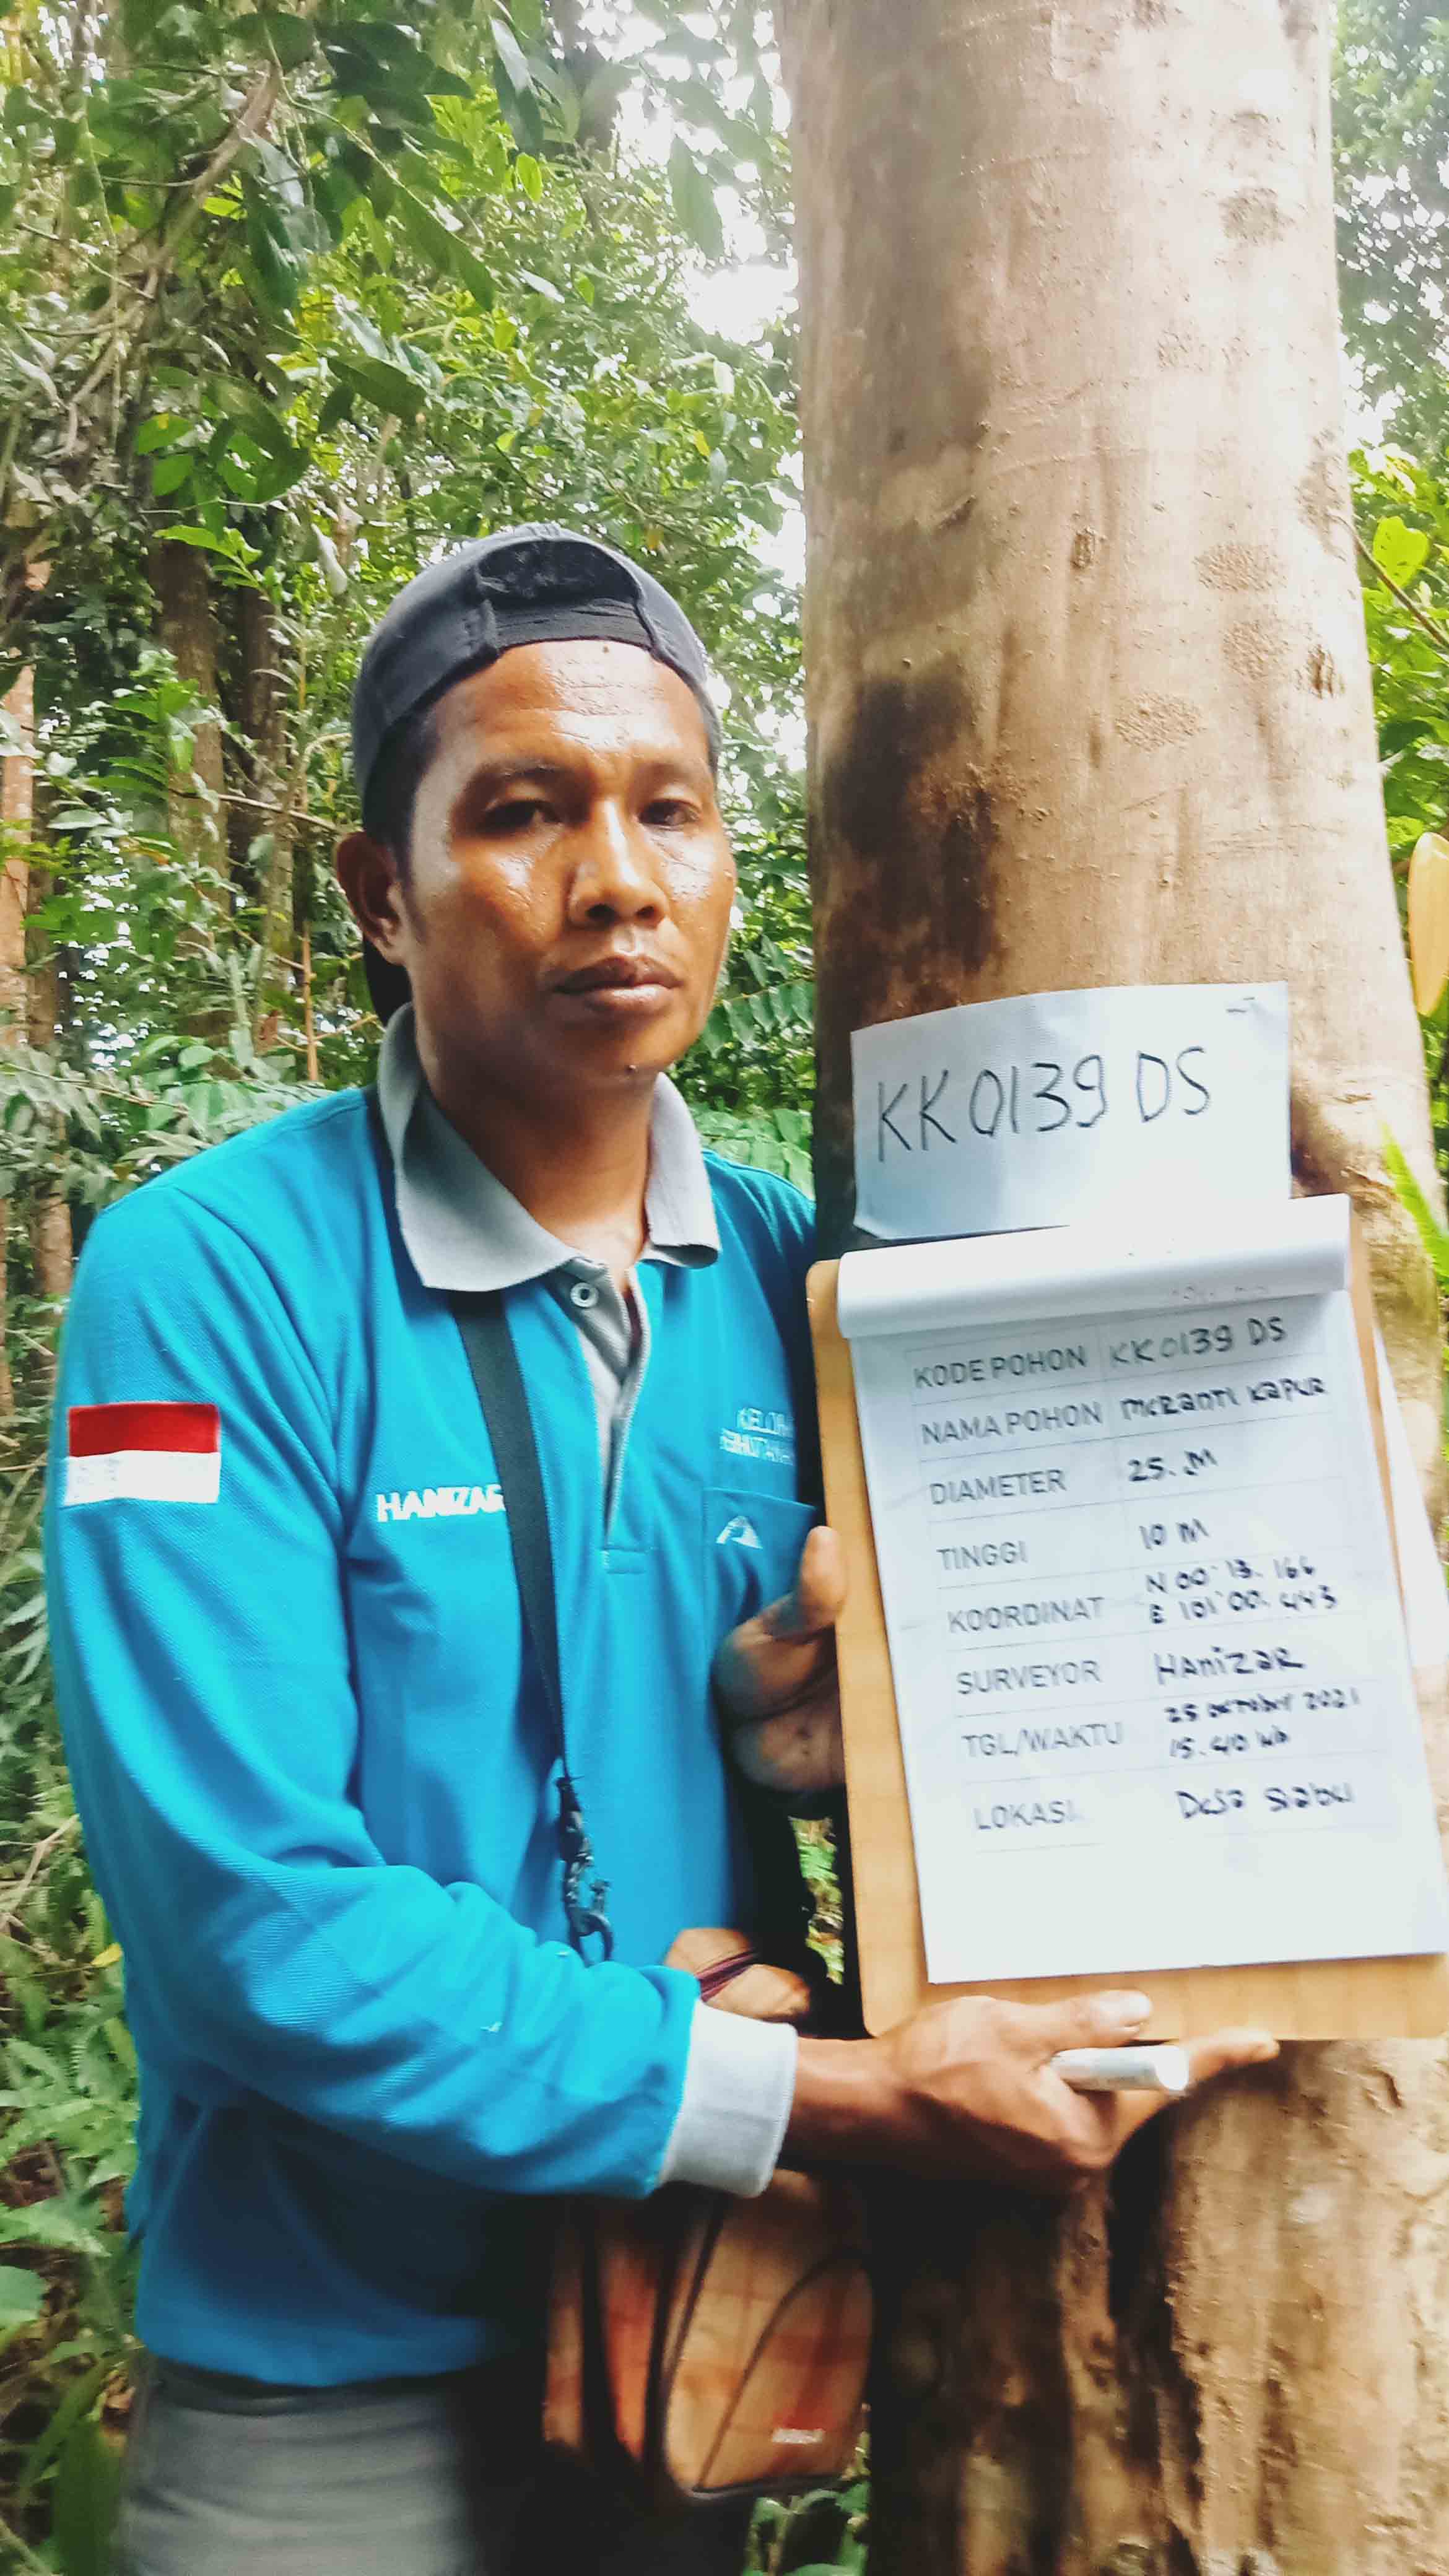 KK 0139 DS
KODE POHON KK 0139 DS
NAMA POHON Meranti Kapur
DIAMETER 25. M
TINGGI 10 M
KOORDINAT N 00° 13. 166
E 101° 00. 443
SURVEYOR HaniZaR
TGL/WAKTU 25 oktober 2021
15.40 Wib
LOKASI Desa siabu
HANIZAR